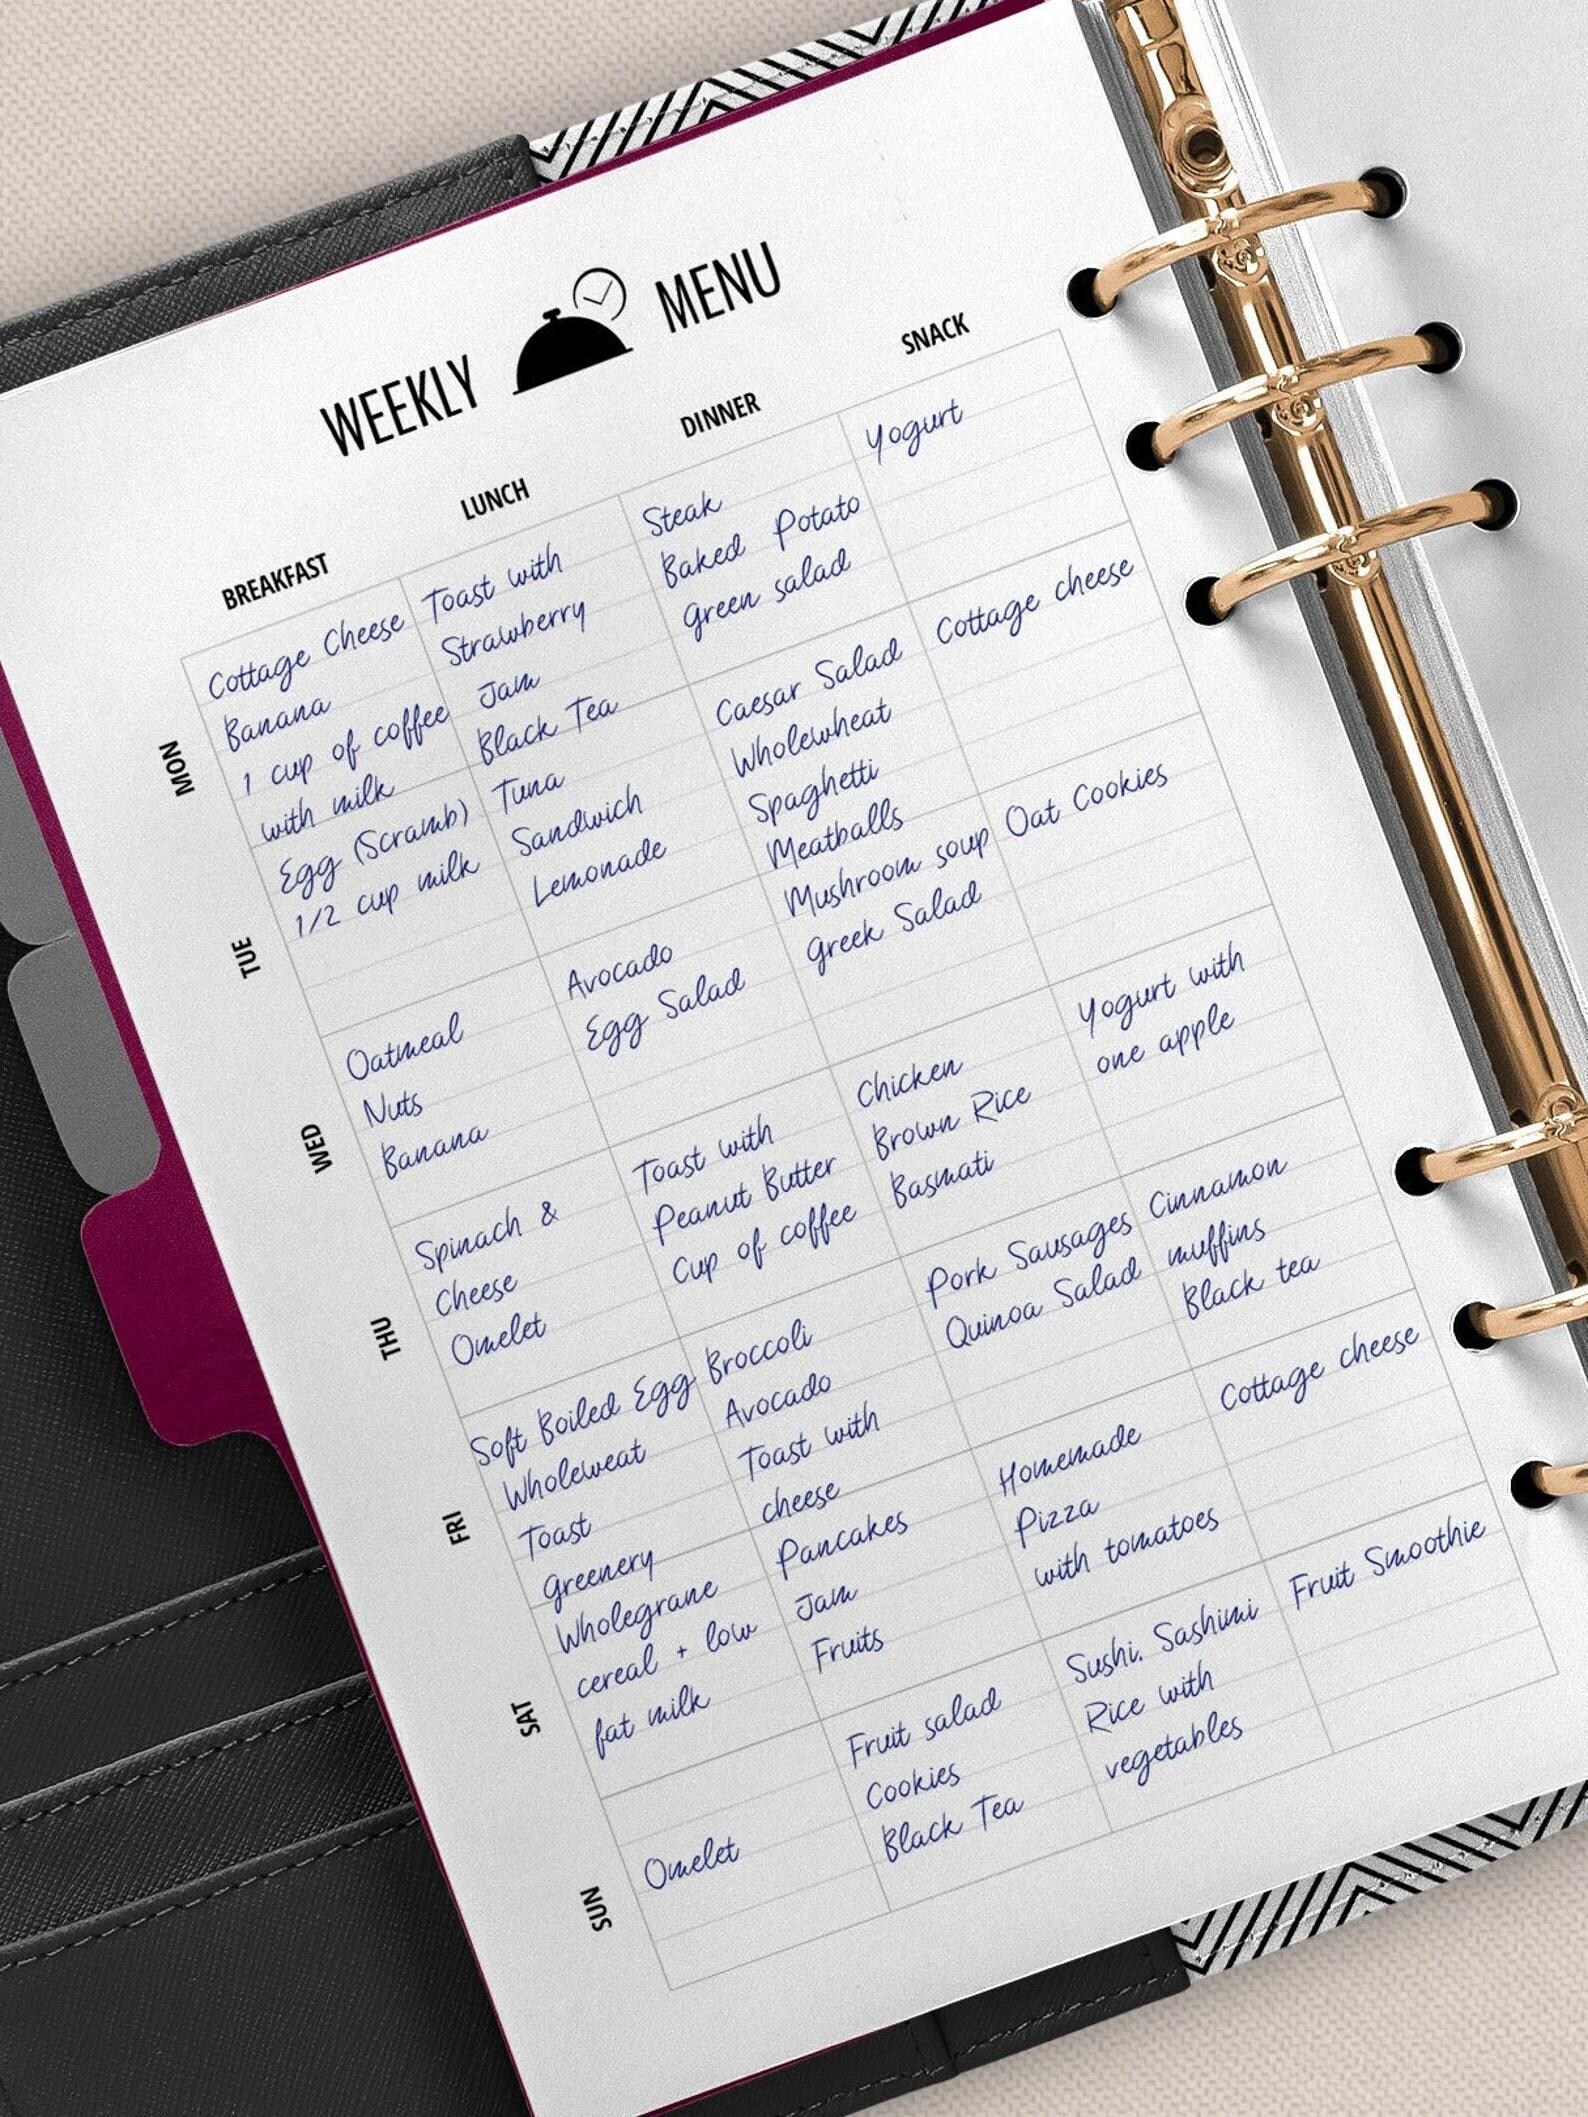 WEEKLY MENU
BREAKFAST
LUNCH
DINNER
SNACK
MON
Cottage Cheese
Banana
1 cup of coffee
with milk
Toast with
Strawberry
Jam
Black Tea
Steak
Baked Potato
Green salad
Yogurt
TUE
Egg (Scramb)
1/2 cup milk
Tuna
Sandwich
Lemonade
Caesar Salad
Wholewheat
Spaghetti
Meatballs
Cottage cheese
WED
Oatmeal
Nuts
Banana
Avocado
Egg Salad
Mushroom soup
Greek Salad
Oat Cookies
THU
Spinach &
Cheese
Omelet
Toast with
Peanut Butter
Cup of coffee
Chicken
Brown Rice
Basmati
Yogurt with
one apple
FRI
Soft Boiled Egg
Wholeweat
Toast
Greenery
Broccoli
Avocado
Toast with
cheese
Pork Sausages
Quinoa Salad
Cinnamon
muffins
Black tea
SAT
Wholegrane
cereal + low
fat milk
Pancakes
Jam
Fruits
Homemade
Pizza
with tomatoes
Cottage cheese
SUN
Omelet
Fruit salad
Cookies
Black Tea
Sushi. Sashimi
Rice with
vegetables
Fruit Smoothie